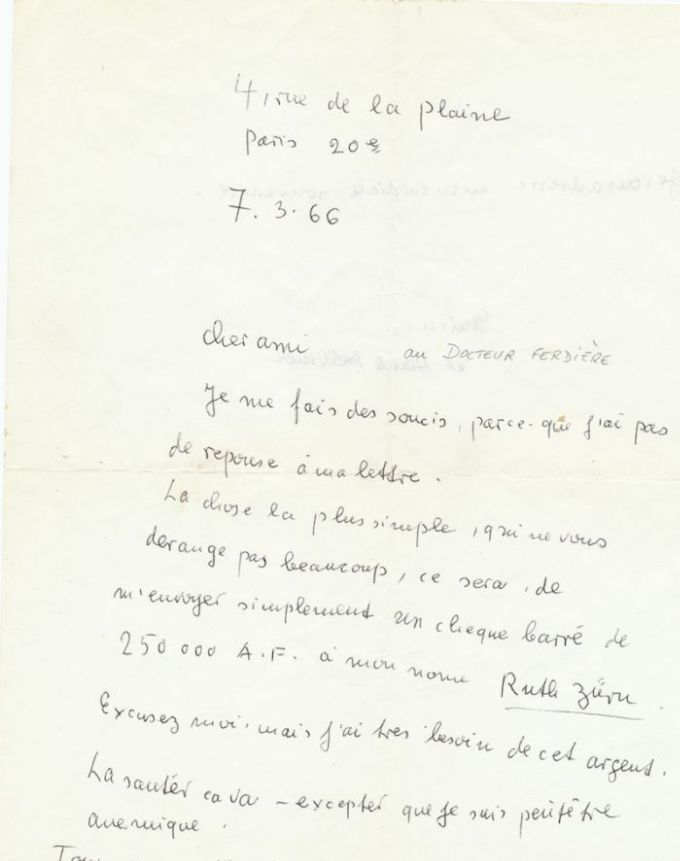 4, rue de la plaine
Paris 20e
7.3.66
cher ami au DOCTEUR FERDIÈRE
Je me fais des soucis, parce-que j'ai pas
de reponse à ma lettre.
La chose la plus simple, qui ne vous
derange pas beaucoup, ce sera, de
m'envoyer simplement un cheque barré de
250 000 A.F. à mon nome Ruth Zürn.
Excusez moi, mais j'ai tres besoin de cet argent.
La santér ca va – excepter que je suis peutêtre
anemique.